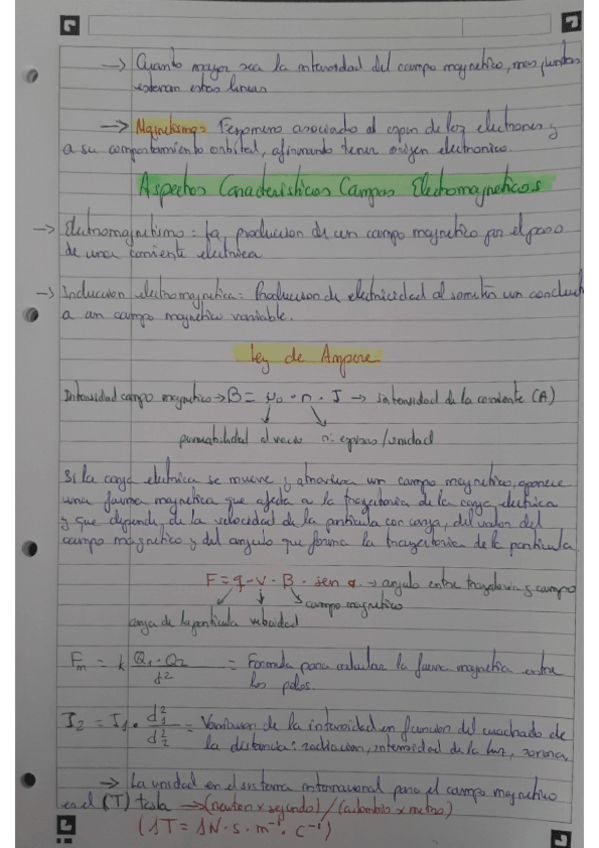 → Cuanto mayor sea la intensidad del campo magnetico, mas juntas
estaran estas lineas
→ Magnetismo = Fenomeno asociado al espin de los electrones y
a su comportamiento orbital, afirmando tener origen electronico.
Aspectos Caracteristicos Campos Electromagneticos
→ Electromagnetismo = La produccion de un campo magnetico por el paso
de una corriente electrica
→ Induccion electromagnetica = Produccion de electricidad al someter un conduct
a un campo magnetico variable.
Ley de Ampere
Intensidad campo magnetico → B = μ0 · n · I → intensidad de la corriente (A)
permeabilidad el vacio n: espiras/unidad
Si la carga electrica se mueve y atraviesa un campo magnetico, aparece
una fuerza magnetica que afecta a la trayectoria de la carga electrica
y que depende de la velocidad de la particula con carga, del valor del
campo magnetico y del angulo que forma la trayectoria de la particula.
F = q · v · B · sen α → angulo entre trayectoria y campo
campo magnetico
carga de la particula velocidad
Fm = k Q1 · Q2 / d² = Formula para calcular la fuerza magnetica entre
los polos.
I2 = I1 · d1² / d2² = Variacion de la intensidad en funcion del cuadrado de
la distancia: radiacion, intensidad de la luz, sonora,
→ La unidad en el sistema internacional para el campo magnetico
es el (T) tesla → (newton x segundo) / (culombio x metro)
(1T = 1N · s · m⁻¹ · C⁻¹)